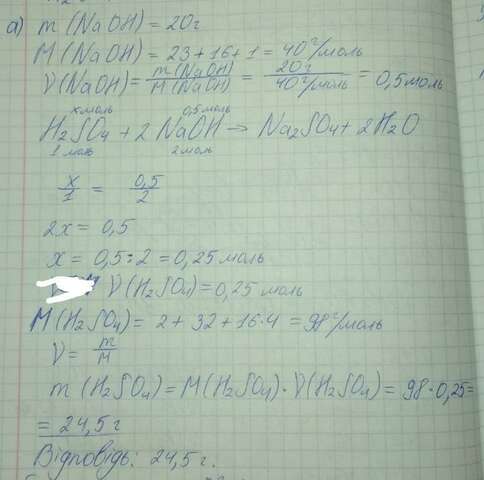 а) m (NaOH) = 20г
M (NaOH) = 23 + 16 + 1 = 40 г/моль
ν(NaOH) = m (NaOH) / M (NaOH) = 20г / 40 г/моль = 0,5 моль
x моль 0,5 моль
H₂SO₄ + 2 NaOH → Na₂SO₄ + 2H₂O
1 моль 2 моль
x/1 = 0,5/2
2x = 0,5
x = 0,5 : 2 = 0,25 моль
ν(H₂SO₄) = 0,25 моль
M (H₂SO₄) = 2 + 32 + 16·4 = 98 г/моль
ν = m/M
m (H₂SO₄) = M(H₂SO₄) · ν(H₂SO₄) = 98 · 0,25 =
= 24,5 г
Відповідь: 24,5 г.